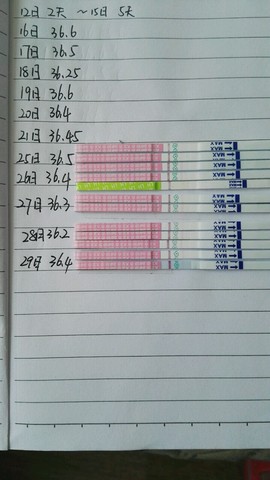 12日 2天 ~15日 5天
16日 36.6
17日 36.5
18日 36.25
19日 36.6
20日 36.4
21日 36.45
25日 36.5
26日 36.4
27日 36.3
28日 36.2
29日 36.4
MAX
MAX
MAX
MAX
MAX
MAX
MAX
MAX
MAX